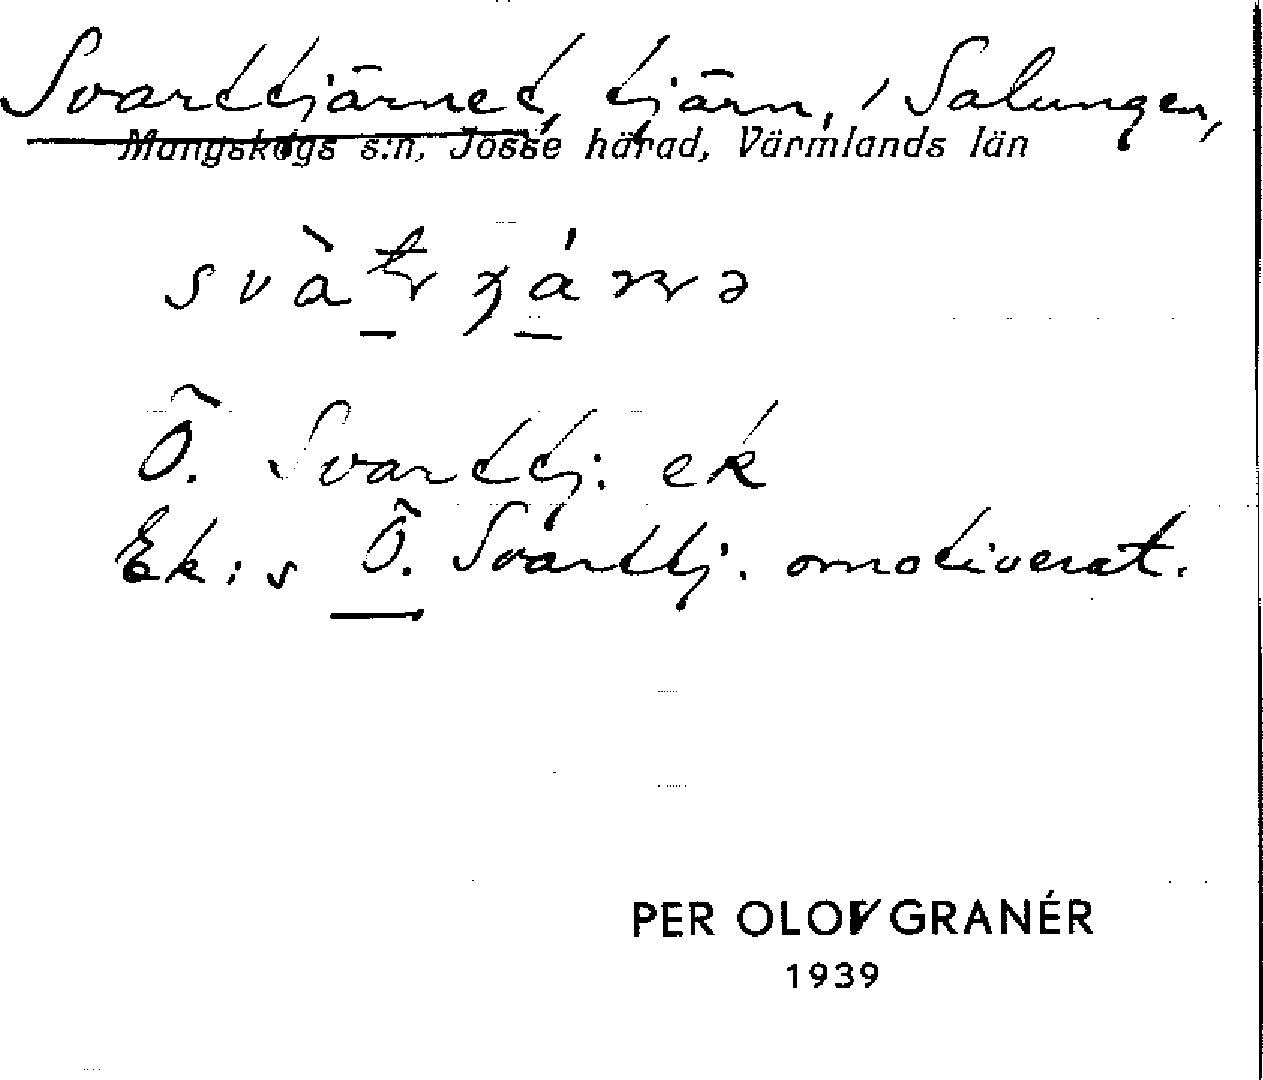 Svarttjärnet, tjärn, i Salungen,
Mangskogs s:n, Jösse härad, Värmlands län
Ö. Svarttj. ek
Ek:s Ö. Svarttj. omotiverat.
PER OLOV GRANÉR
1939